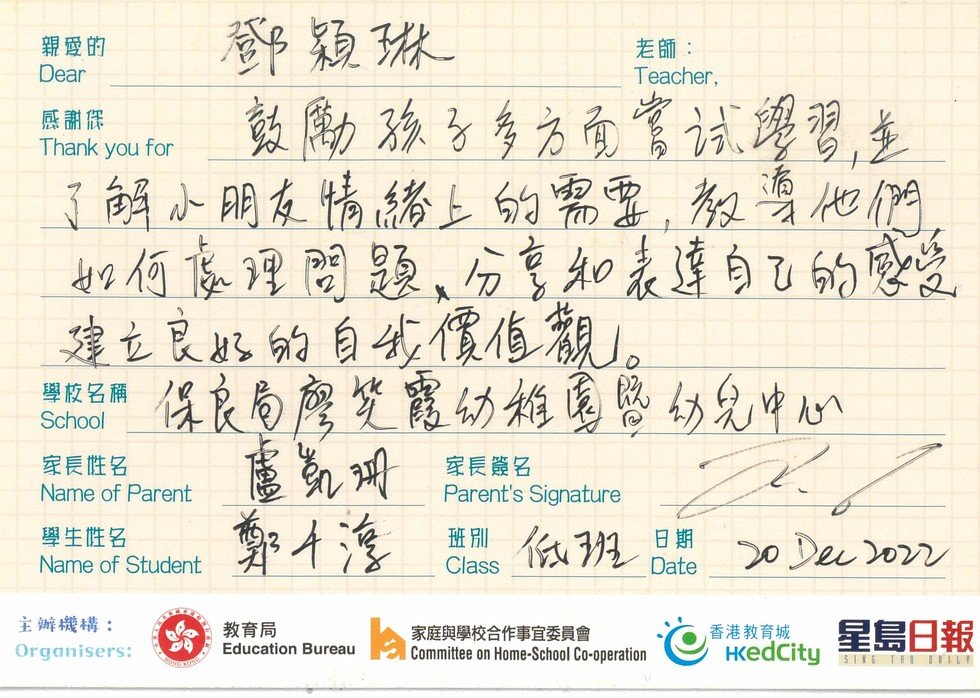 親愛的 鄧穎琳 老師：
Dear Teacher,
感謝您 鼓勵孩子多方面嘗試學習,並
Thank you for
了解小朋友情緒上的需要,教導他們
如何處理問題、分享和表達自己的感受
建立良好的自我價值觀。
學校名稱 保良局廖笑霞幼稚園暨幼兒中心
School
家長姓名 盧凱珊 家長簽名
Name of Parent Parent's Signature
學生姓名 鄭千淳 班別 低班 日期 20 Dec 2022
Name of Student Class Date
主辦機構： 教育局 家庭與學校合作事宜委員會 香港教育城 星島日報
Organisers: Education Bureau Committee on Home-School Co-operation HKedCity SING TAO DAILY
HONG KONG